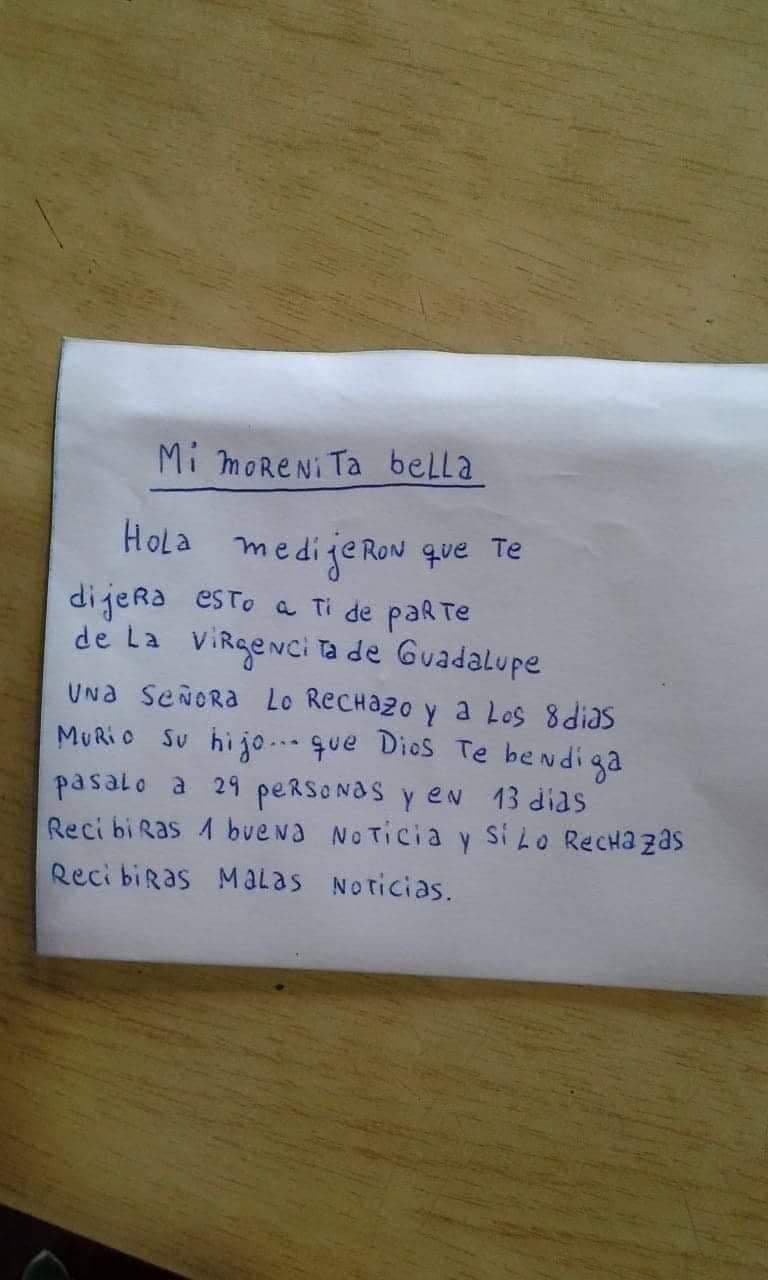 Mi morenita bella
Hola medijeron que te
dijera esto a ti de parte
de la virgencita de Guadalupe
una señora lo rechazo y a los 8 dias
murio su hijo... que Dios te bendiga
pasalo a 29 personas y en 13 dias
recibiras 1 buena noticia y si lo rechazas
recibiras malas noticias.